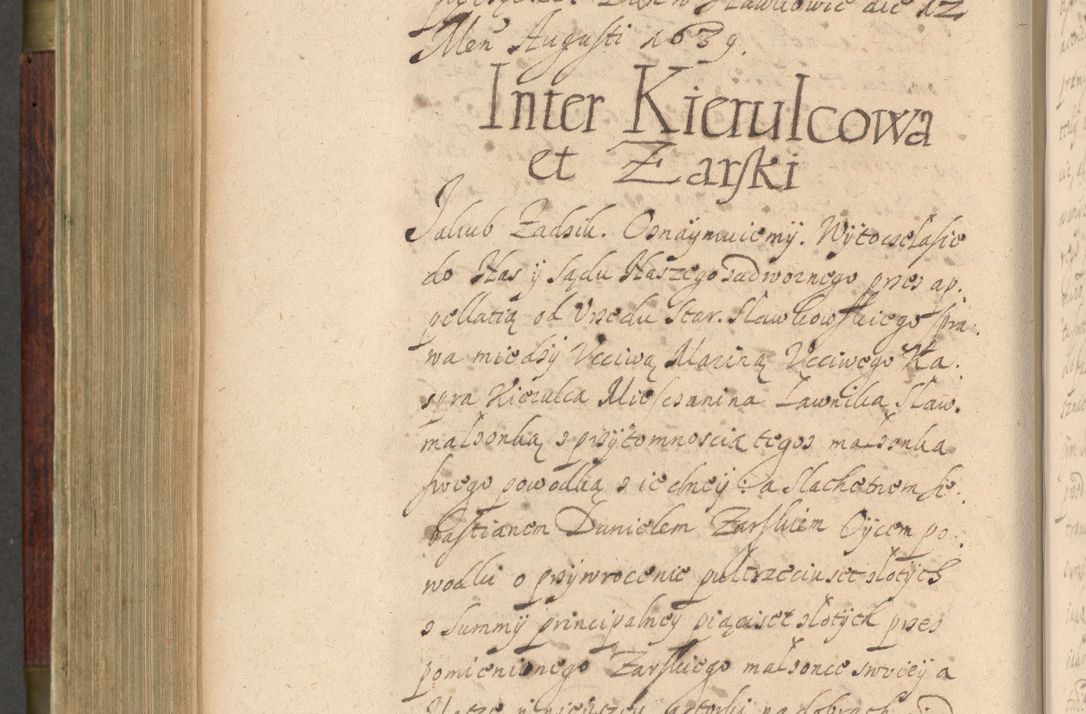 Men Augusti 1639.
Inter Kierulcowa
et Żarski
Jakub Zadzik. Oznaymuiemy. Wytoczełasie
do Nas y Sądu Naszego zadwornego przez ap.
pellatią od Vrzędu Star. Sławkowskiego spra.
wa miedzy Vcciwą Mariną Vcciwego Ka.
spra Kierulca Miesczanina Ławnika Sław.
małzonką z przytomnoscią tegoz małzonka
swego powodką z iedney : a Slachetnem se.
bastianem Danielem Żarskiem Oycem po.
wodki o przywrocenie pułtrzeciuset złotych
z Summy principalney piąciset złotych przez
pomienionego Żarskiego małzonce swoiey a